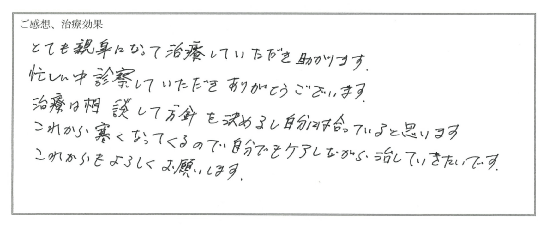 ご感想、治療効果
とても親身になって治療していただき助かります.
忙しい中診察していただきありがとうございます.
治療は相談して方針を決めるし自分には合っていると思います
これから寒くなってくるので自分でもケアしながら治していきたいです.
これからもよろしくお願いします.